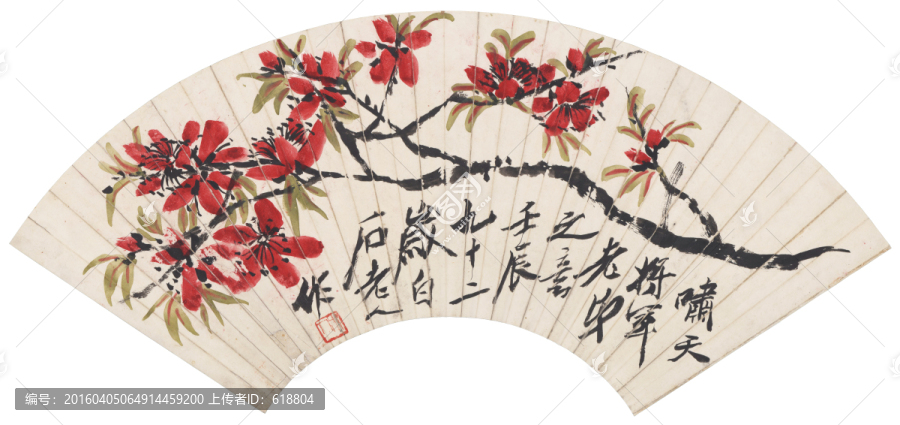 嘯天
將軍
老弟
之
壬辰
九十二
歲白
石老人
作
编号：20160405064914459200 上传者ID：618804